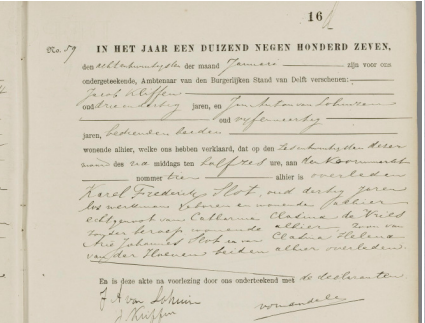 16
No. 59 IN HET JAAR EEN DUIZEND NEGEN HONDERD ZEVEN,
den achtentwintigsten der maand Januari zijn voor ons
ondergeteekende, Ambtenaar van den Burgerlijken Stand van Delft verschenen:
Jacob Kleffen
oud drieendertig jaren, en van
oud vijfenveertig
jaren, beiden
wonende alhier, welke ons hebben verklaard, dat op den zesentwintigsten dezer
maand des na middags ten half zes ure, aan de Koornmarkt
nummer twee alhier is overleden
Karel Frederik Slot, oud dertig jaren
los werkman geboren en wonende alhier
echtgenoot van Catharina Clasina de Vries
zonder beroep wonende alhier, zoon van
Arie Johannes Slot en van Clasina Helena
van der Hoeven beiden alhier overleden
En is deze akte na voorlezing door ons onderteekend met de declaranten
J A van
J